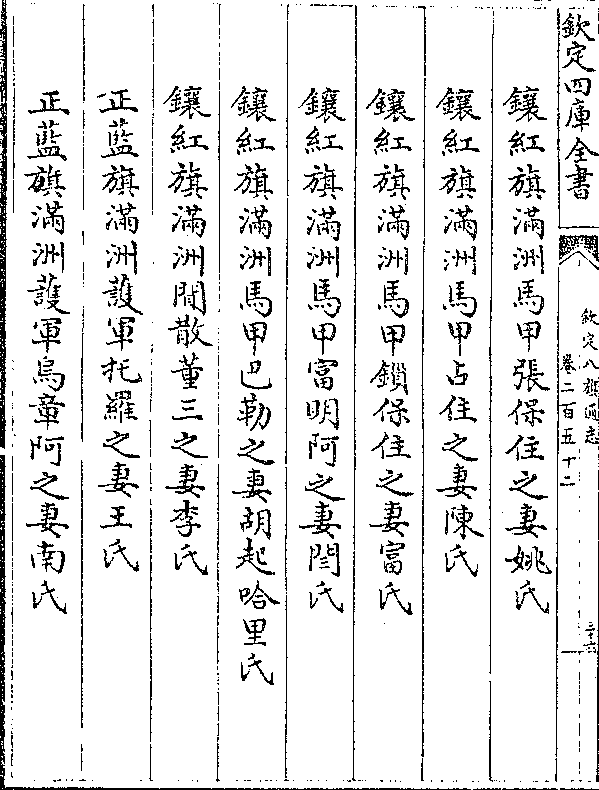 欽定四庫全書
欽定八旗通志
卷二百五十二
三十六
鑲紅旗滿洲馬甲張保住之妻姚氏
鑲紅旗滿洲馬甲占住之妻陳氏
鑲紅旗滿洲馬甲鎖保住之妻富氏
鑲紅旗滿洲馬甲富明阿之妻閆氏
鑲紅旗滿洲馬甲巴勒之妻胡起哈里氏
鑲紅旗滿洲閒散董三之妻李氏
正藍旗滿洲護軍托羅之妻王氏
正藍旗滿洲護軍烏章阿之妻南氏